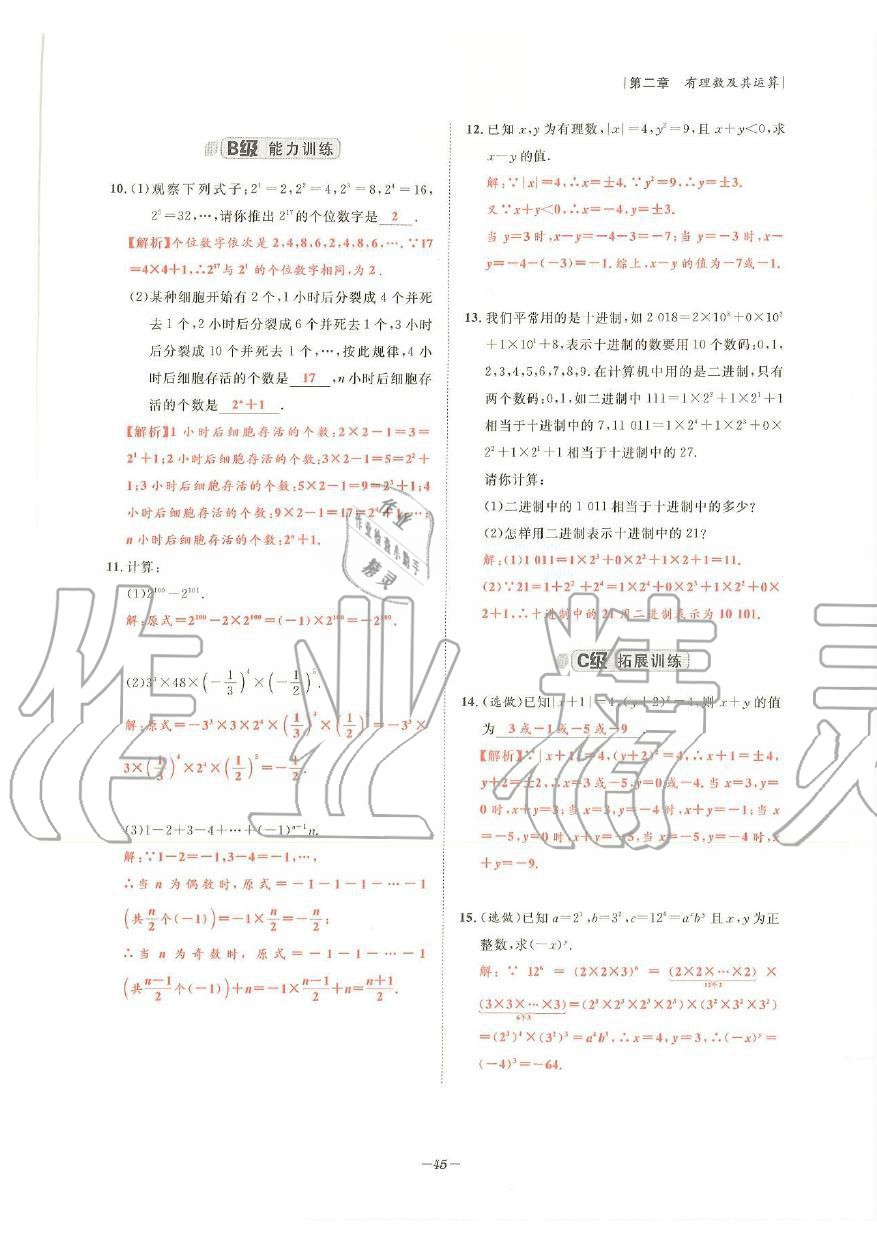 |第二章 有理数及其运算|
B级 能力训练
10.(1)观察下列式子:2¹=2,2²=4,2³=8,2⁴=16,
2⁵=32,…,请你推出2¹⁷的个位数字是 2 .
【解析】个位数字依次是2,4,8,6,2,4,8,6,….∵17
=4×4+1,∴2¹⁷与2¹的个位数字相同,为2.
(2)某种细胞开始有2个,1小时后分裂成4个并死
去1个,2小时后分裂成6个并死去1个,3小时
后分裂成10个并死去1个,…,按此规律,4小
时后细胞存活的个数是 17 ,n小时后细胞存
活的个数是 2ⁿ+1 .
【解析】1小时后细胞存活的个数:2×2-1=3=
2¹+1;2小时后细胞存活的个数:3×2-1=5=2²+
1;3小时后细胞存活的个数:5×2-1=9=2³+1;4
小时后细胞存活的个数:9×2-1=17=2⁴+1;…;
n小时后细胞存活的个数:2ⁿ+1.
11.计算:
(1)2¹⁰⁰-2¹⁰¹.
解:原式=2¹⁰⁰-2×2¹⁰⁰=(-1)×2¹⁰⁰=-2¹⁰⁰.
(2)3³×48×(-1/3)⁴×(-1/2)⁵.
解:原式=-3³×3×2⁴×(1/3)⁴×(1/2)⁵=-3³×
3×(1/3)⁴×2⁴×(1/2)⁵=-1/2.
(3)1-2+3-4+…+(-1)ⁿ⁻¹n.
解:∵1-2=-1,3-4=-1,…,
∴当n为偶数时,原式=-1-1-1-…-1
(共n/2个(-1))=-1×n/2=-n/2;
∴当n为奇数时,原式=-1-1-…-1
(共(n-1)/2个(-1))+n=-1×(n-1)/2+n=(n+1)/2.
12.已知x,y为有理数,|x|=4,y²=9,且x+y<0,求
x-y的值.
解:∵|x|=4,∴x=±4.∵y²=9,∴y=±3.
又∵x+y<0,∴x=-4,y=±3.
当y=3时,x-y=-4-3=-7;当y=-3时,x-
y=-4-(-3)=-1.综上,x-y的值为-7或-1.
13.我们平常用的是十进制,如2 018=2×10³+0×10²
+1×10¹+8,表示十进制的数要用10个数码:0,1,
2,3,4,5,6,7,8,9.在计算机中用的是二进制,只有
两个数码:0,1,如二进制中111=1×2²+1×2¹+1
相当于十进制中的7,11 011=1×2⁴+1×2³+0×
2²+1×2¹+1相当于十进制中的27.
请你计算:
(1)二进制中的1 011相当于十进制中的多少?
(2)怎样用二进制表示十进制中的21?
解:(1)1 011=1×2³+0×2²+1×2+1=11.
(2)∵21=1+2²+2⁴=1×2⁴+0×2³+1×2²+0×
2+1,∴十进制中的21用二进制表示为10 101.
C级 拓展训练
14.(选做)已知|x+1|=4,(y+2)²=4,则x+y的值
为 3或-1或-5或-9 .
【解析】∵|x+1|=4,(y+2)²=4,∴x+1=±4,
y+2=±2,∴x=3或-5,y=0或-4.当x=3,y=
0时,x+y=3;当x=3,y=-4时,x+y=-1;当x
=-5,y=0时,x+y=-5,当x=-5,y=-4时,x
+y=-9.
15.(选做)已知a=2³,b=3²,c=12⁶=aˣbʸ且x,y为正
整数,求(-x)ʸ.
解:∵12⁶=(2×2×3)⁶=(2×2×…×2)×
12个2
(3×3×…×3)=(2³×2³×2³×2³)×(3²×3²×3²)
6个3
=(2³)⁴×(3²)³=a⁴b³,∴x=4,y=3,∴(-x)ʸ=
(-4)³=-64.
作业
作业检查小助手
精灵
作业精灵
—45—